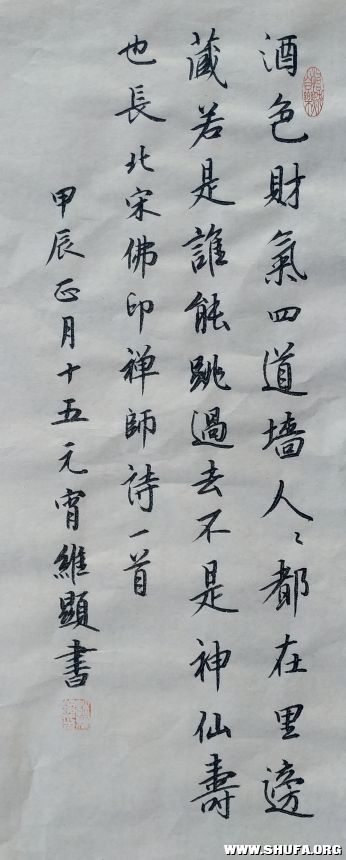 酒色財氣四道墻人〻都在里邊
藏若是誰能跳過去不是神仙壽
也長北宋佛印禅師詩一首
甲辰正月十五元宵維顯書
WWW.SHUFA.ORG